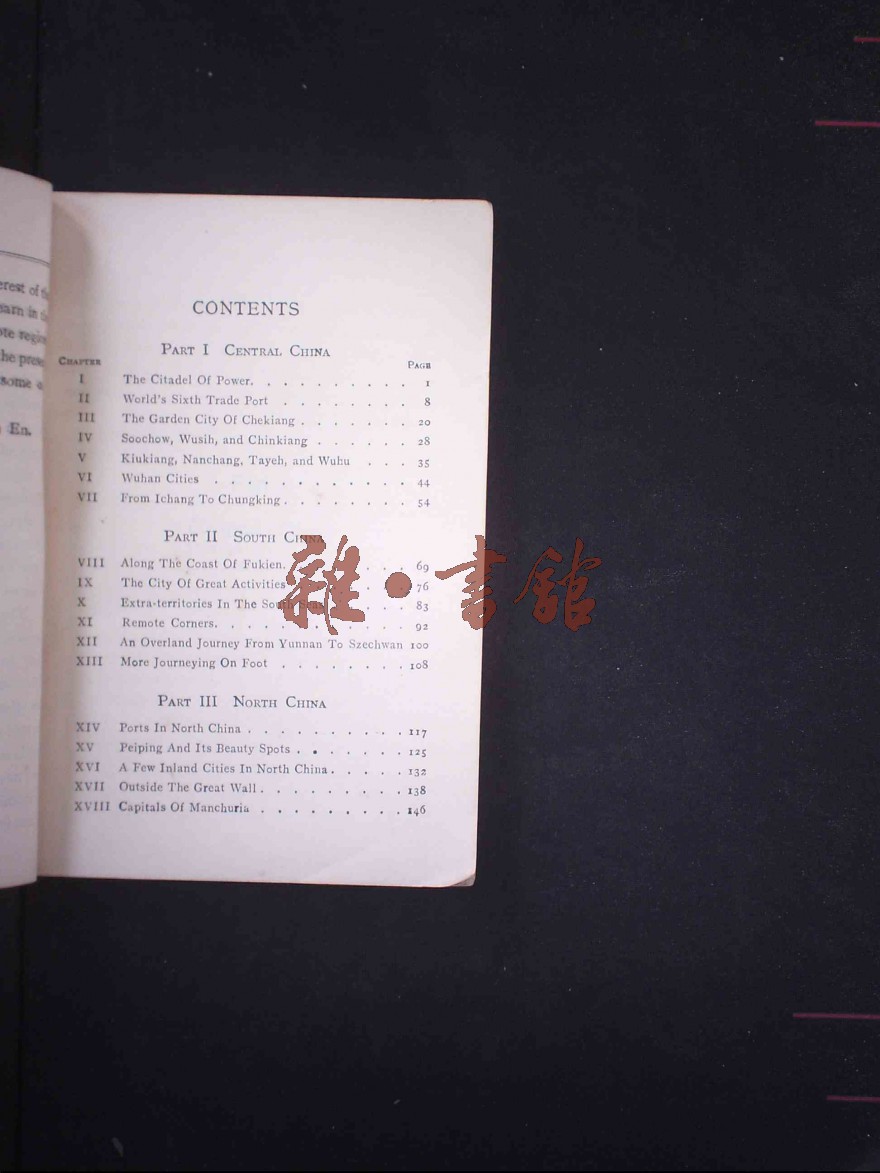 erest of
earn in
ote region
he prese
some
En.
CONTENTS
PART I CENTRAL CHINA
CHAPTER PAGE
I The Citadel Of Power. . . . . . . . . . 1
II World's Sixth Trade Port . . . . . . . . 8
III The Garden City Of Chekiang . . . . . . . 20
IV Soochow, Wusih, and Chinkiang . . . . . . 28
V Kiukiang, Nanchang, Tayeh, and Wuhu . . . 35
VI Wuhan Cities . . . . . . . . . . . . 44
VII From Ichang To Chungking . . . . . . . . 54
PART II SOUTH CHINA
VIII Along The Coast Of Fukien. . . . . . . . 69
IX The City Of Great Activities . . . . . . . 76
X Extra-territories In The South Seas . . . . . 83
XI Remote Corners. . . . . . . . . . . . 92
XII An Overland Journey From Yunnan To Szechwan 100
XIII More Journeying On Foot . . . . . . . . 108
PART III NORTH CHINA
XIV Ports In North China . . . . . . . . . . 117
XV Peiping And Its Beauty Spots . . . . . . . 125
XVI A Few Inland Cities In North China . . . . . 132
XVII Outside The Great Wall . . . . . . . . . 138
XVIII Capitals Of Manchuria . . . . . . . . . 146
雜·書館